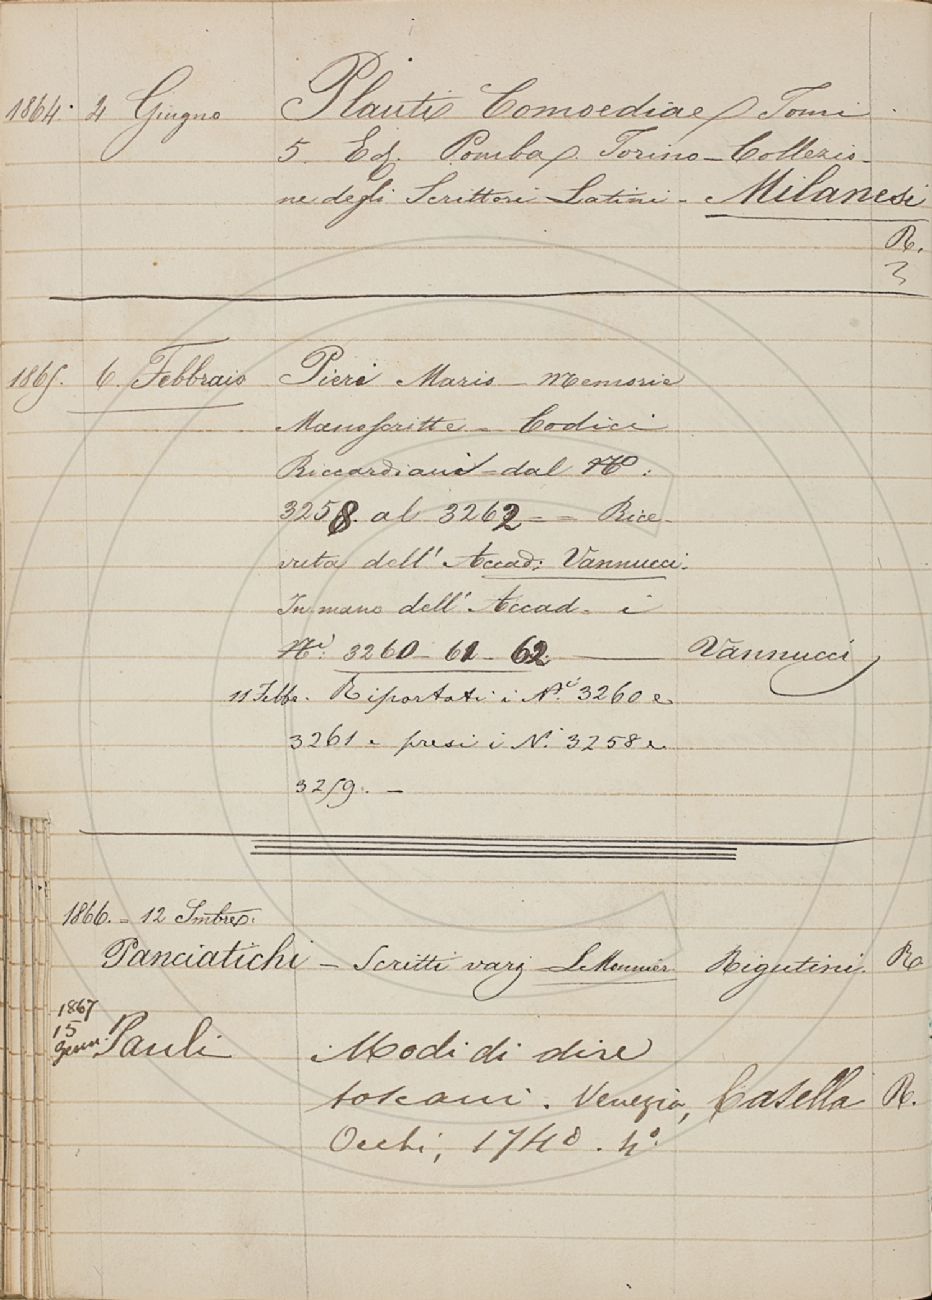 1864. 4 Giugno Plauti Comoediae Tomi
5. Ed. Pomba. Torino - Collezio-
ne degli Scrittori Latini - Milanesi
R.
1865. 6. Febbraio Pieri Mario - Memorie
Manoscritte - Codici
Riccardiani - dal No:
3258. al 3262 = = Rice-
vuta dell' Accad: Vannucci.
In mano dell' Accad. i
Ni: 3260 - 61 - 62 Vannucci
11 Febbo. Riportati i Ni 3260 e
3261 e presi i N. 3258 e
3259. -
1866. - 12 Smbre.
Panciatichi - Scritti varj Le Monnier Rigutini. R
1867
15
Genn. Pauli Modi di dire
toscani. Venezia, Casella R.
Occhi, 1740. 4o.